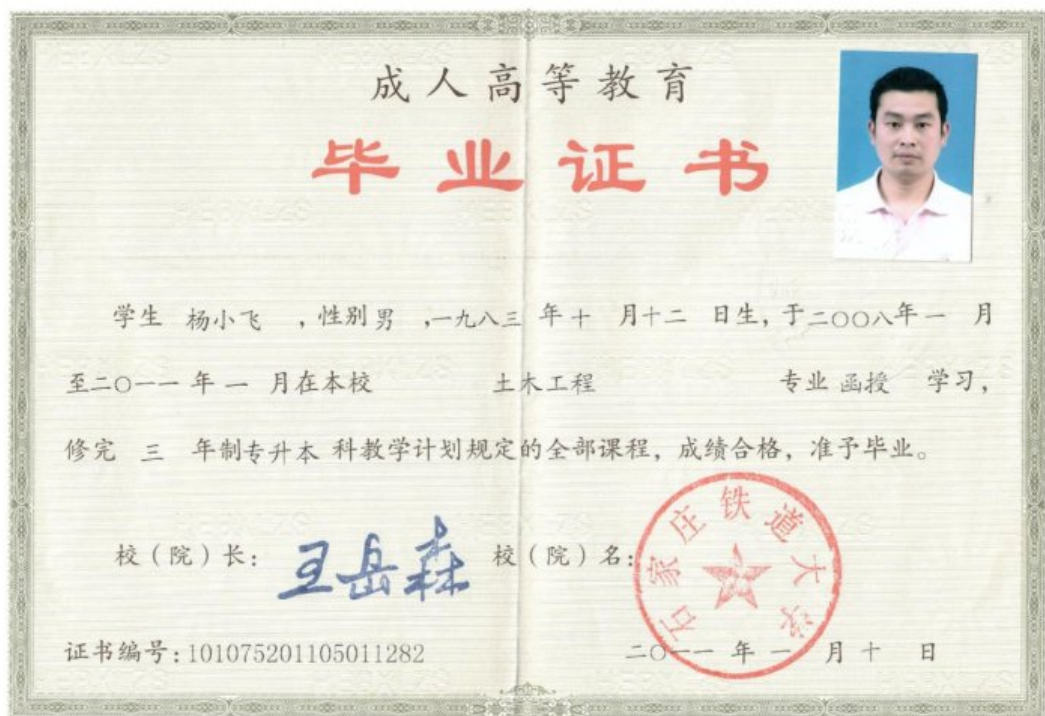 成人高等教育
毕业证书
学生 杨小飞 ，性别男 ，一九八三 年十 月十二 日生，于二〇〇八年一 月
至二〇一一 年一 月在本校 土木工程 专业 函授 学习，
修完 三 年制专升本 科教学计划规定的全部课程，成绩合格，准予毕业。
校（院）长： 王岳森 校（院）名：
石家庄铁道大学
证书编号：101075201105011282 二〇一一 年 一 月 十 日